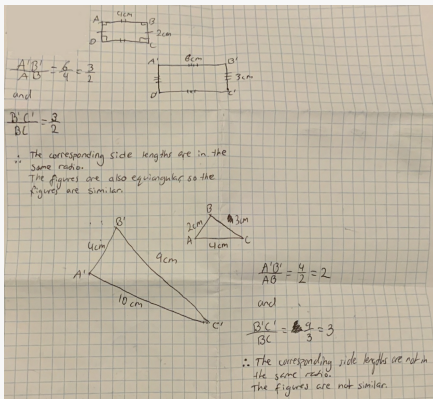 4cm
A B
2cm
D C
A'B'/AB = 6/4 = 3/2
A' 6cm B'
3cm
D' C'
and
B'C'/BC = 3/2
∴ The corresponding side lengths are in the
same radio.
The figures are also equiangular so the
figures are similar.
B'
B
2cm 3cm
4cm
A C
4cm
9cm
A'
10 cm
C'
A'B'/AB = 4/2 = 2
and
B'C'/BC = 9/3 = 3
∴ The corresponding side lengths are not in
the same radio.
The figures are not similar.